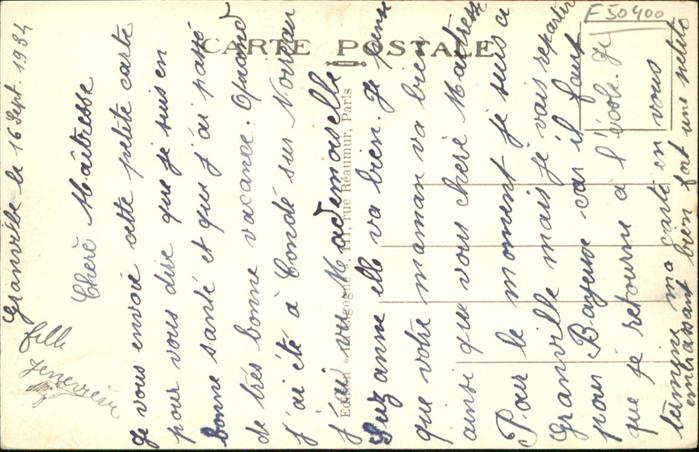 CARTE POSTALE
F50400
Granville le 16 Sept. 1934
Cherè Maîtresse
Je vous envoie cette petite carte
pour vous dire que je suis en
bonne santé et que j'ai passé
de très bonne vacance. Quand
j'ai été à Condé sur Noireau
j'ai vu Mademoiselle
Suzanne elle va bien. Je pense
que votre maman va bien
ainsi que vous cherè Maîtresse
Pour le moment je suis a
Granville mais je vais repartir
pour Bayeux car il faut
que je retourne à l'école. Je
termine ma carte en vous
embrassant bien fort une petite
fille
Jenevière
rue Réaumur, Paris